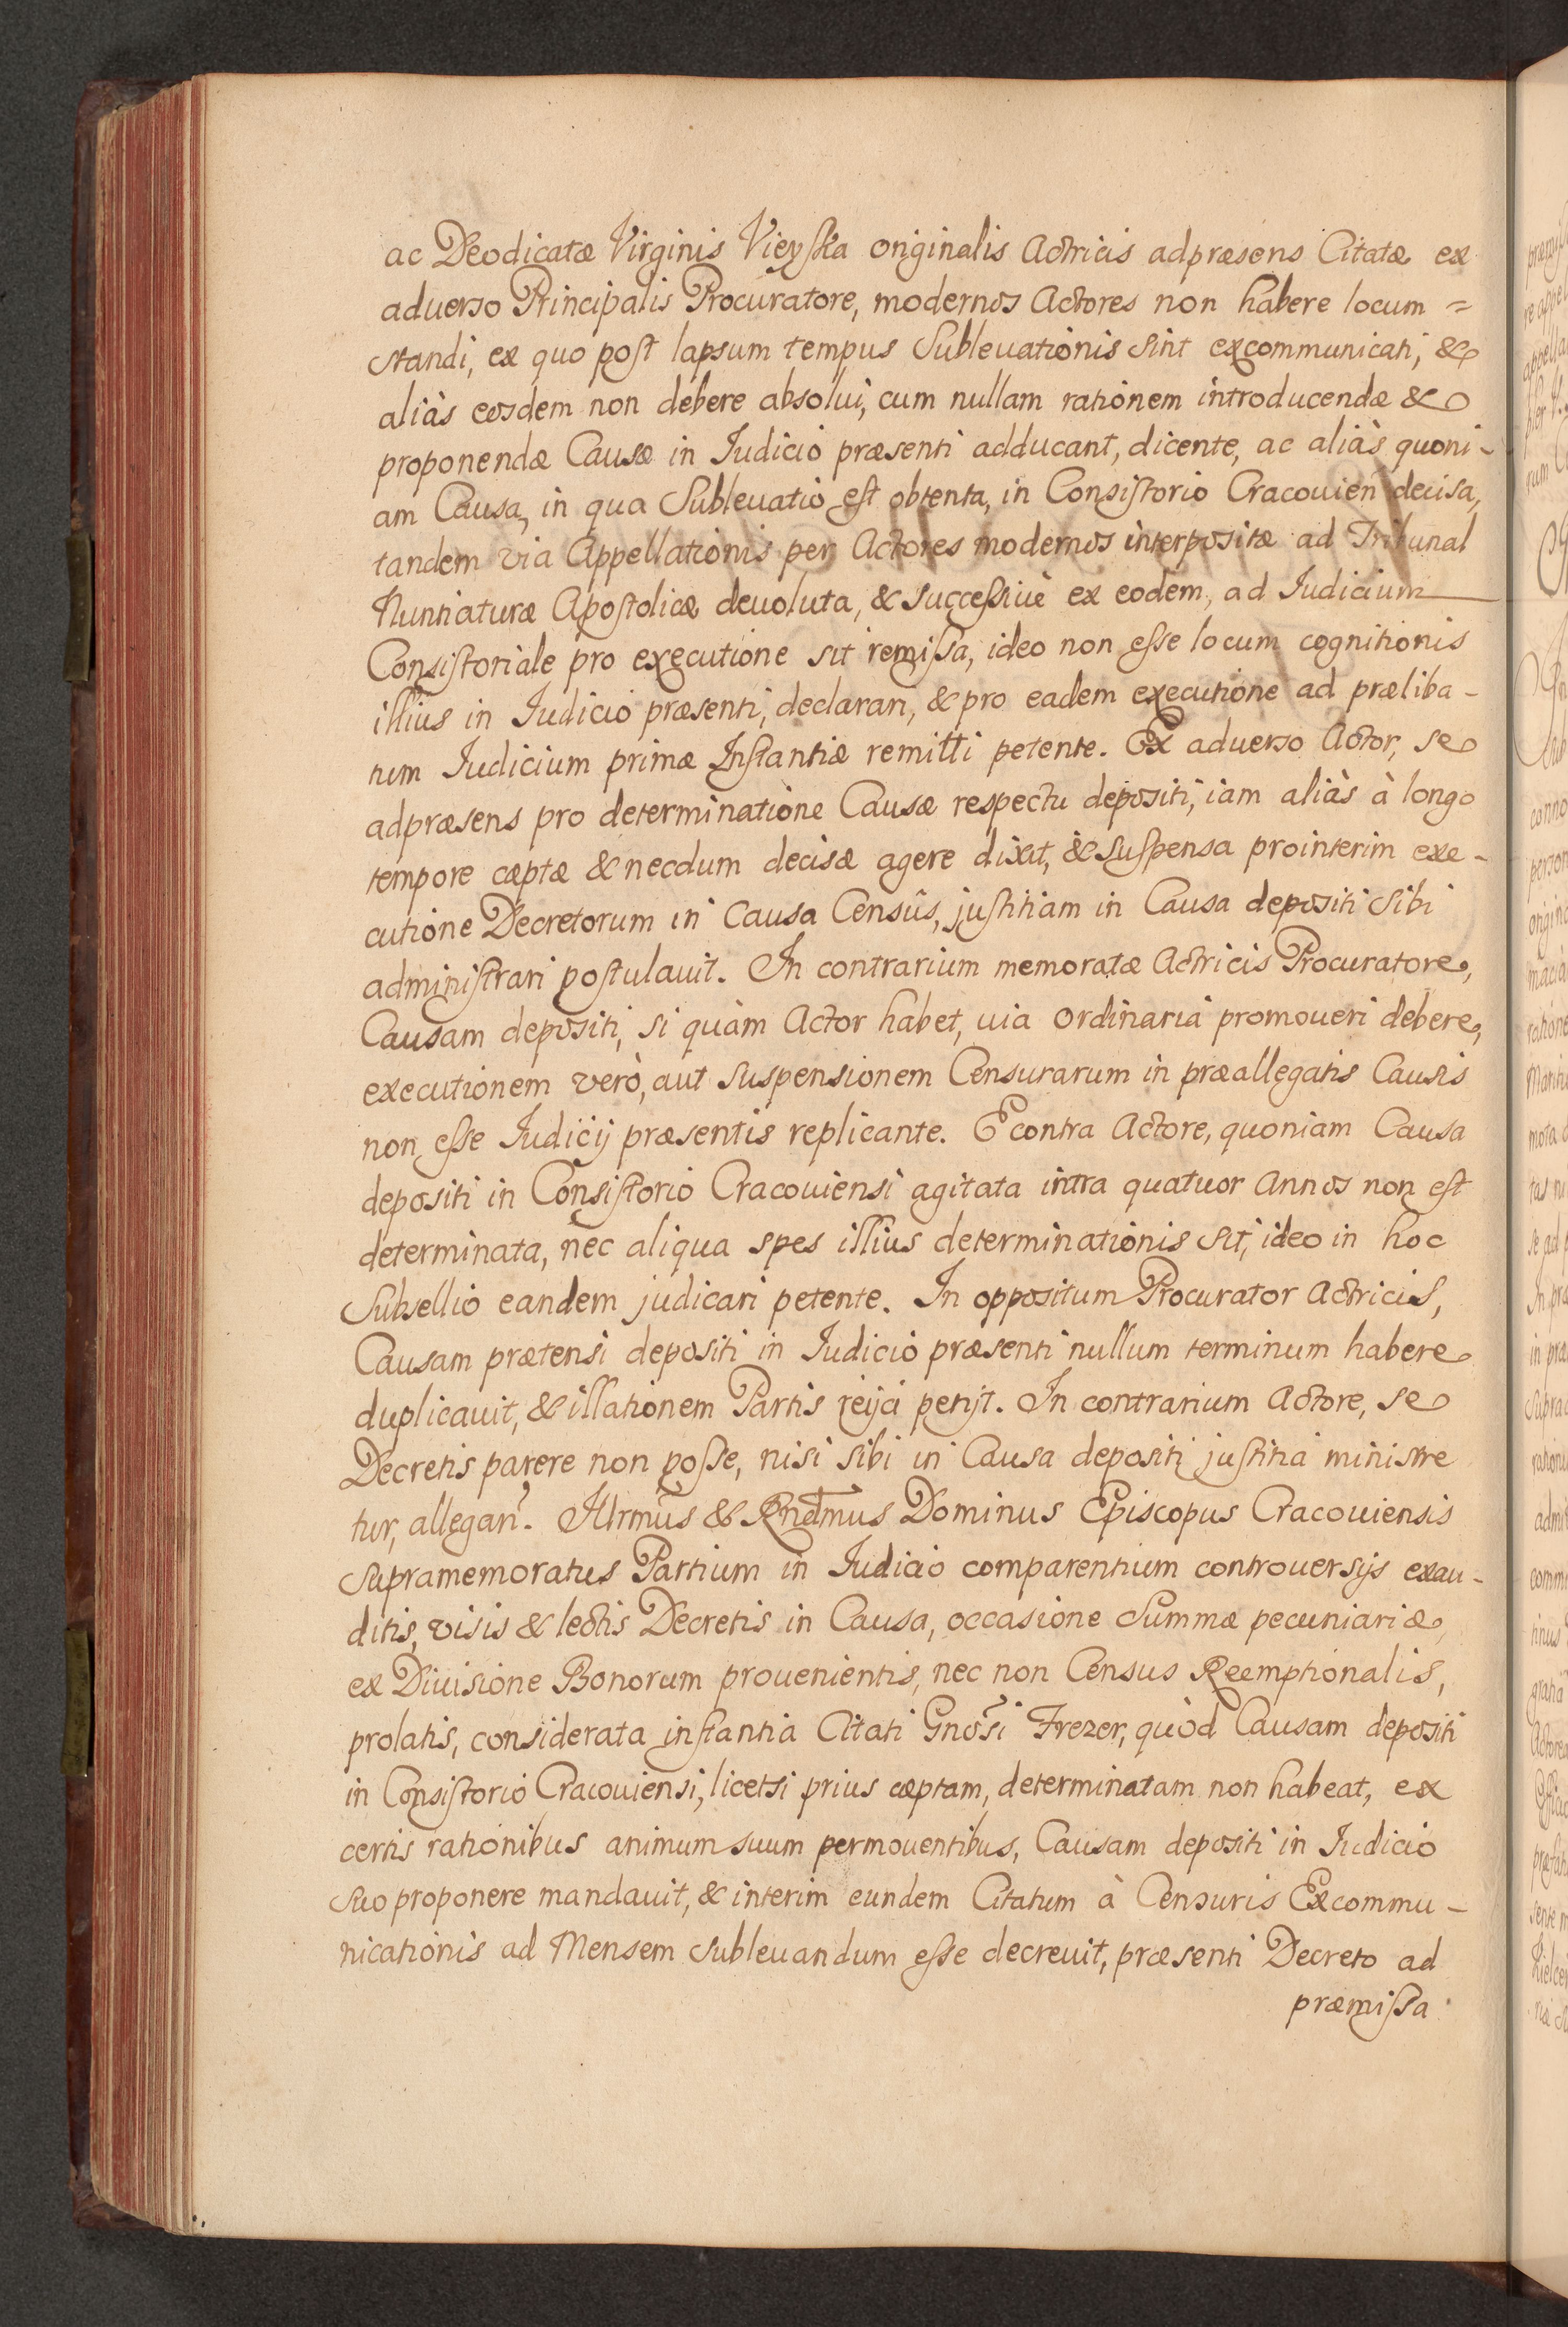 ac Deodicatæ Virginis Vieyska originalis Actricis adpræsens Citatæ ex
aduerso Principalis Procuratore, modernos Actores non habere locum =
standi, ex quo post lapsum tempus Subleuationis sint excommunicati, &
aliàs eosdem non debere absolui, cum nullam rationem introducendæ &
proponendæ Causæ in Iudicio præsenti adducant, dicente, ac aliàs quoni-
am Causa, in qua Subleuatio est obtenta, in Consistorio Cracouien decisa,
tandem via Appellationis per Actores modernos interpositæ ad Tribunal
Nuntiaturæ Apostolicæ deuoluta, & successiuè ex eodem, ad Iudicium
Consistoriale pro executione sit remissa, ideo non esse locum cognitionis
illius in Iudicio præsenti, declarari, & pro eadem executione ad præliba-
tum Iudicium primæ Instantiæ remitti petente. Ex aduerso Actor, se
adpræsens pro determinatione Causæ respectu depositi, iam aliàs à longo
tempore cæptæ & necdum decisæ agere dixit, & suspensa prointerim exe-
cutione Decretorum in Causa Censûs, justitiam in Causa depositi sibi
administrari postulauit. In contrarium memoratæ Actricis Procuratore,
Causam depositi, si quàm Actor habet, uia ordinaria promoueri debere,
executionem verò, aut suspensionem Censurarum in præallegatis Causis
non esse Iudicij præsentis replicante. E contra Actore, quoniam Causa
depositi in Consistorio Cracouiensi agitata intra quatuor Annos non est
determinata, nec aliqua spes illius determinationis sit, ideo in hoc
Subsellio eandem judicari petente. In oppositum Procurator Actricis,
Causam prætensi depositi in Iudicio præsenti nullum terminum habere
duplicauit, & illationem Partis reijci petijt. In contrarium Actore, se
Decretis parere non posse, nisi sibi in Causa depositi justitia ministre
tur, allegan̄. Illrmūs & Rnd̄mus Dominus Episcopus Cracouiensis
supramemoratus Partium in Iudicio comparentium controuersijs exau-
ditis, visis & lectis Decretis in Causa, occasione Summæ pecuniariæ,
ex Diuisione Bonorum prouenientis, nec non Census Reemptionalis,
prolatis, considerata instantia Citati Gnōsi Frezer, quòd Causam depositi
in Consistorio Cracouiensi, licetsi prius cæptam, determinatam non habeat, ex
certis rationibus animum suum permouentibus, Causam depositi in Iudicio
suo proponere mandauit, & interim eundem Citatum à Censuris Excommu-
nicationis ad Mensem subleuandum esse decreuit, præsenti Decreto ad
præmissa